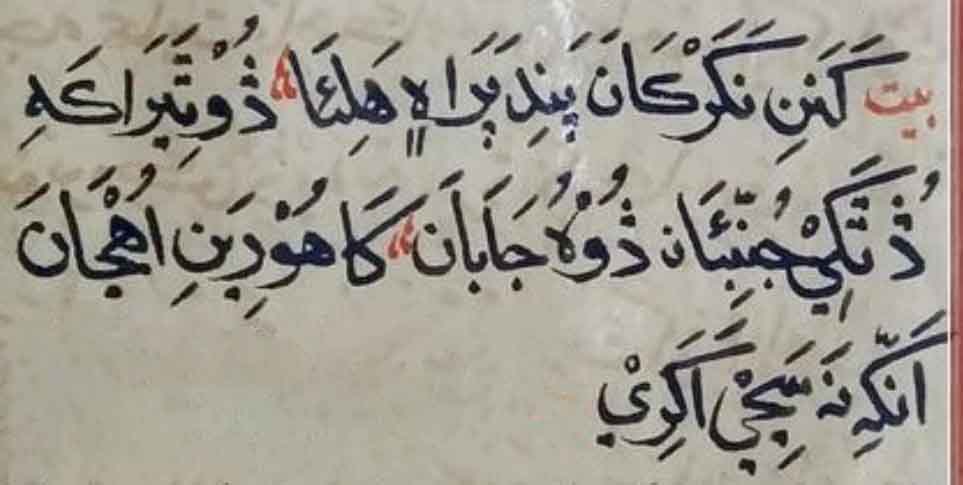 بيت كَنِنِ نَكَرْكَانَ پَنڊِ پَرَاهٍ هَلِئَا، ڎُوْتَيَرَاكَهِ
ڎُ تَكِيْ جُنِّبِئَان ڎُوْهُ جَابَان، كَا هُوْرِينِ اُهْجَانَ
اَنَكِّهِ نَہ سَڃِيْ اَكَرِيْ